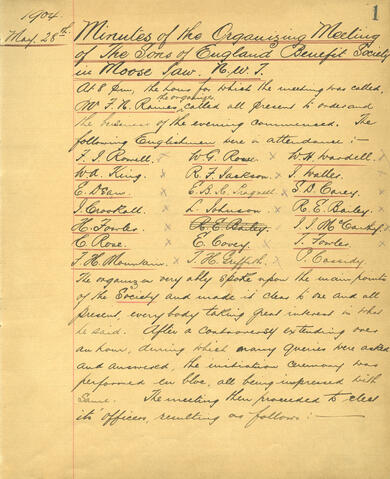 1904.
1
May. 28th.
Minutes of the Organizing Meeting
of The Sons of England Benefit Society
in Moose Jaw. N.W.T.
At 8 p.m., the hour for which the meeting was called,
the organizer
Mr F. N. called all present to order and
the business of the evening commenced. The
following Englishmen were in attendance :-
F. J. Rowell. W. G. Rose. W. H. Wardell.
Wd. King. R. F. Jackson. J. Walles.
E. B. S. D. Carey.
J. Crookall. L. Johnson. R. E. Bailey.
H. Fowles. R. E. Bailey. J. J. McCarthy.
C. Rose. E. Covey. T. Fowles.
T. H. Mountain. T. H. Griffith. P. Cassidy
The organizer very ably spoke upon the main points
of the Society and made it clear to one and all
present, everybody taking great interest in what
he said. After a controversy extending over
an hour, during which many queries were asked
and answered, the initiation ceremony was
performed en bloc, all being impressed with
same. The meeting then proceeded to elect
its officers, resulting as follows :-